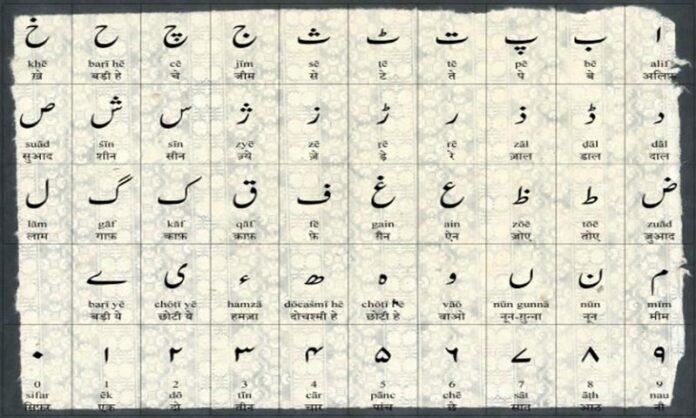 ا ب پ ت ٹ ث ج چ ح خ
khē barī hē cē jīm sē ṭē tē pē bē alif
ख़े बड़ी हे चे जीम से टे ते पे बे अलिफ़
د ڈ ذ ر ڑ ز ژ س ش ص
suād śīn sīn zyē zē ṛē rē zāl ḍāl dāl
सुआद शीन सीन ज़्ये ज़े ड़े रे ज़ाल डाल दाल
ض ط ظ ع غ ف ق ک گ ل
lām gāf kāf qāf fē gain ain zōē tōē zuād
लाम गाफ़ काफ़ क़ाफ़ फ़े ग़ैन ऐन ज़ोए तोए ज़ुआद
م ن ں و ہ ھ ء ی ے
barī yē chōṭī yē hamzā dōcaśmī hē chōṭī hē vāō nūn gunnā nūn mīm
बड़ी ये छोटी ये हमज़ा दोचश्मी हे छोटी हे वाओ नून-ग़ुन्ना नून मीम
۰ ۱ ۲ ۳ ۴ ۵ ۶ ۷ ۸ ۹
0 1 2 3 4 5 6 7 8 9
sifar ēk dō tīn cār pānc chē sāt āṭh nau
सिफ़र एक दो तीन चार पांच छे सात आठ नौ